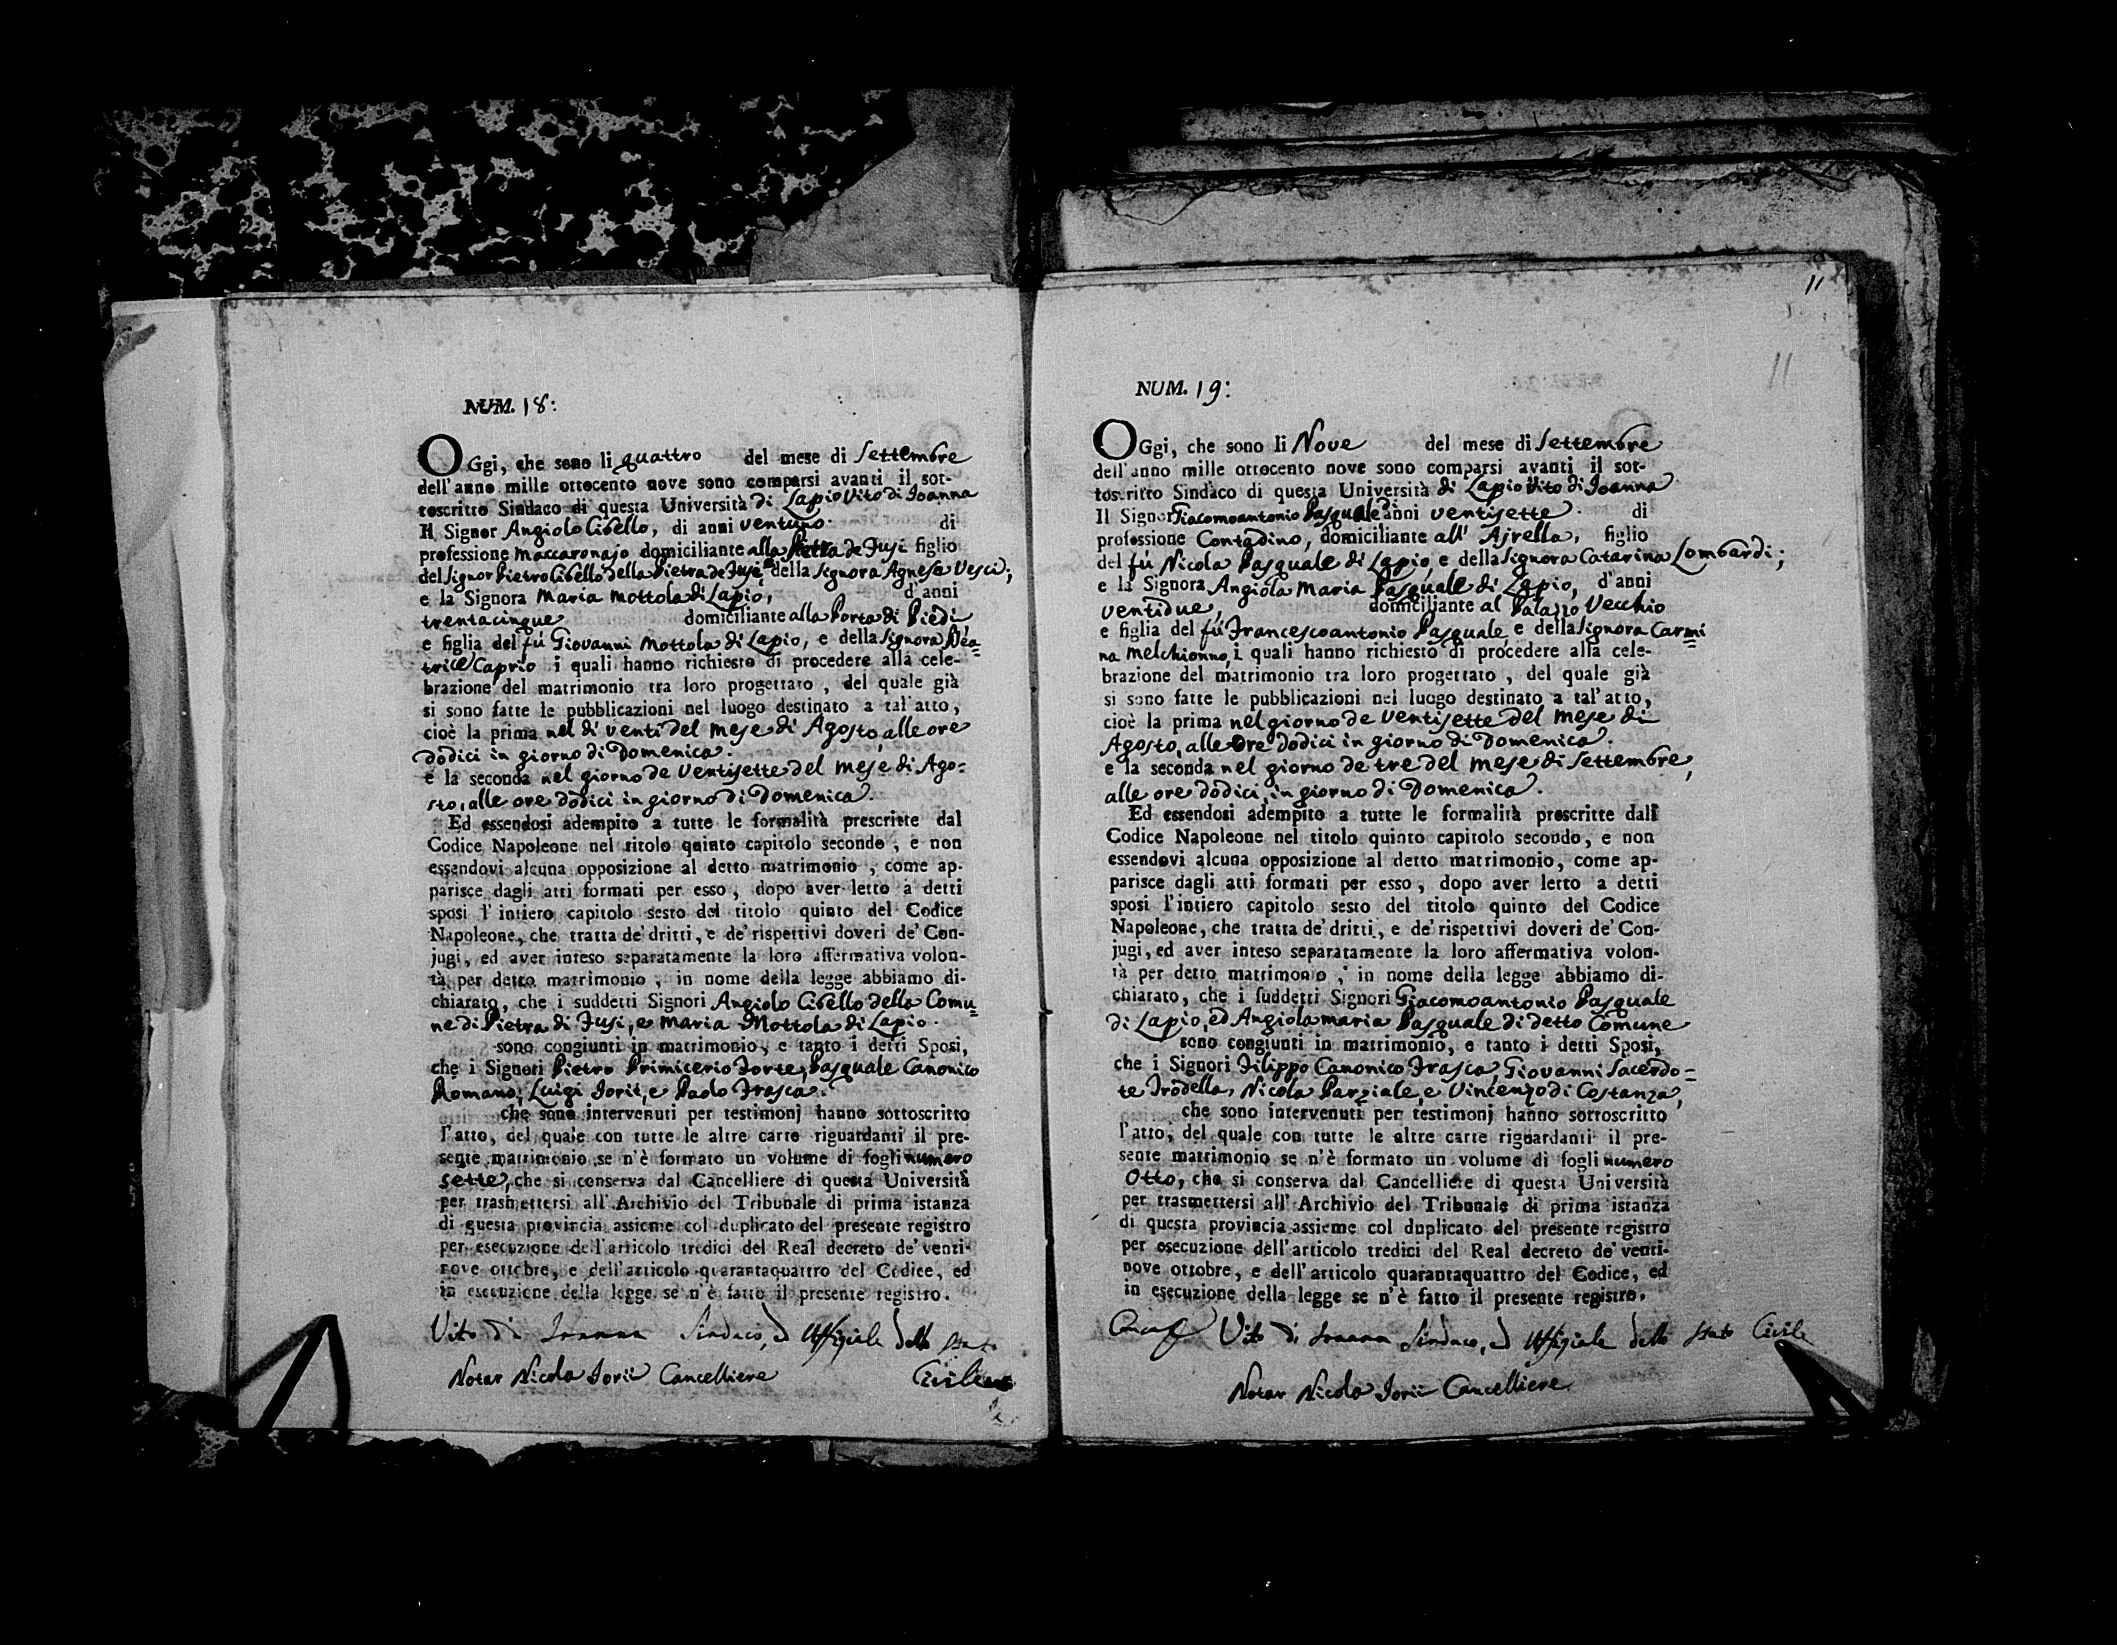 NUM. 18:
OGgi, che sono li quattro del mese di Settembre
dell'anno mille ottocento nove sono comparsi avanti il sot-
toscritto Sindaco di questa Università di Lapio Vito di Ioanna
Il Signor Angiolo Cibello, di anni ventuno. di
professione Maccaronajo domiciliante alla Pietra de Fusi figlio
del Signor Pietro Cibello della Pietra de Fusi, e della Signora Agnesa Vesci;
e la Signora Maria Mottola di Lapio, d'anni
trentacinque domiciliante alla Porta di Piedi
e figlia del fù Giovanni Mottola di Lapio, e della Signora Bea=
trice Caprio i quali hanno richiesto di procedere alla cele-
brazione del matrimonio tra loro progettato, del quale già
si sono fatte le pubblicazioni nel luogo destinato a tal'atto,
cioè la prima nel dì venti del mese di Agosto, alle ore
dodici in giorno di Domenica.
e la seconda nel giorno de ventisette del mese di Ago=
sto, alle ore dodici in giorno di Domenica.
Ed essendosi adempito a tutte le formalità prescritte dal
Codice Napoleone nel titolo quinto capitolo secondo, e non
essendovi alcuna opposizione al detto matrimonio, come ap-
parisce dagli atti formati per esso, dopo aver letto a detti
sposi l'intiero capitolo sesto del titolo quinto del Codice
Napoleone, che tratta de' dritti, e de' rispettivi doveri de' Con-
jugi, ed aver inteso separatamente la loro affermativa volon-
tà per detto matrimonio, in nome della legge abbiamo di-
chiarato, che i suddetti Signori Angiolo Cibello della Comu=
ne di Pietra di Fusi, e Maria Mottola di Lapio.
sono congiunti in matrimonio, e tanto i detti Sposi,
che i Signori Pietro Primicerio Forte, Pasquale Canonico
Romano, Luigi Iorii, e Paolo Frasca.
che sono intervenuti per testimonj hanno sottoscritto
l'atto, del quale con tutte le altre carte riguardanti il pre-
sente matrimonio se n'è formato un volume di fogli numero
sette, che si conserva dal Cancelliere di questa Università
per trasmettersi all'Archivio del Tribunale di prima istanza
di questa provincia assieme col duplicato del presente registro
per esecuzione dell'articolo tredici del Real decreto de' venti-
nove ottobre, e dell'articolo quarantaquattro del Codice, ed
in esecuzione della legge se n'è fatto il presente registro.
Vito di Ioanna Sindaco, ed Uffiziale dello Stato
Civile
Notar Nicola Iorii Cancelliere
11
11
NUM. 19:
OGgi, che sono li Nove del mese di Settembre
dell'anno mille ottocento nove sono comparsi avanti il sot-
toscritto Sindaco di questa Università di Lapio Vito di Ioanna
Il Signor Giacomoantonio Pasquale di anni ventisette. di
professione Contadino, domiciliante all' Ajrella, figlio
del fù Nicola Pasquale di Lapio, e della Signora Catarina Lombardi;
e la Signora Angiola Maria Pasquale di Lapio, d'anni
ventidue, domiciliante al Palazzo Vecchio
e figlia del fù Francescoantonio Pasquale, e della Signora Carmi=
na Melchionno, i quali hanno richiesto di procedere alla cele-
brazione del matrimonio tra loro progettato, del quale già
si sono fatte le pubblicazioni nel luogo destinato a tal'atto,
cioè la prima nel giorno de ventisette del mese di
Agosto, alle ore dodici in giorno di Domenica.
e la seconda nel giorno de tre del mese di Settembre,
alle ore dodici, in giorno di Domenica.
Ed essendosi adempito a tutte le formalità prescritte dall
Codice Napoleone nel titolo quinto capitolo secondo, e non
essendovi alcuna opposizione al detto matrimonio, come ap-
parisce dagli atti formati per esso, dopo aver letto a detti
sposi l'intiero capitolo sesto del titolo quinto del Codice
Napoleone, che tratta de' dritti, e de' rispettivi doveri de' Con-
jugi, ed aver inteso separatamente la loro affermativa volon-
tà per detto matrimonio, in nome della legge abbiamo di-
chiarato, che i suddetti Signori Giacomoantonio Pasquale
di Lapio, ed Angiolamaria Pasquale di detto Comune
sono congiunti in matrimonio, e tanto i detti Sposi,
che i Signori Filippo Canonico Frasca, Giovanni Sacerdo=
te Trodella, Nicola Parziale, e Vincenzo di Costanza,
che sono intervenuti per testimonj hanno sottoscritto
l'atto, del quale con tutte le altre carte riguardanti il pre-
sente matrimonio se n'è formato un volume di fogli numero
Otto, che si conserva dal Cancelliere di questa Università
per trasmettersi all'Archivio del Tribunale di prima istanza
di questa provincia assieme col duplicato del presente registro
per esecuzione dell'articolo tredici del Real decreto de' venti-
nove ottobre, e dell'articolo quarantaquattro del Codice, ed
in esecuzione della legge se n'è fatto il presente registro.
Vito di Ioanna Sindaco, ed Uffiziale dello Stato Civile
Notar Nicola Iorii Cancelliere